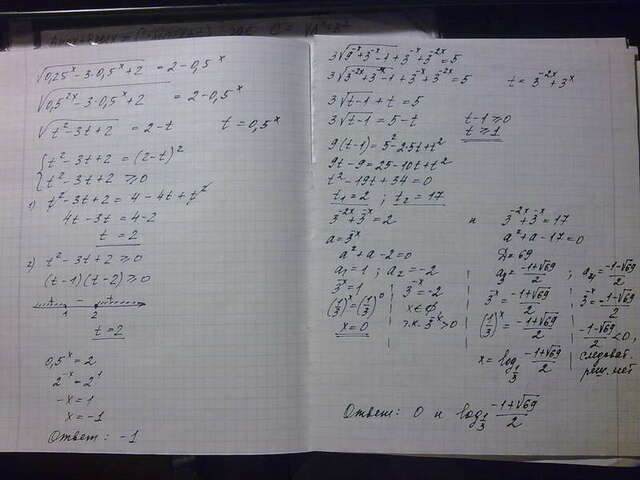 √(0,25ˣ - 3·0,5ˣ + 2) = 2 - 0,5ˣ
√(0,5²ˣ - 3·0,5ˣ + 2) = 2 - 0,5ˣ
√(t² - 3t + 2) = 2 - t t = 0,5ˣ
{ t² - 3t + 2 = (2-t)²
{ t² - 3t + 2 ≥ 0
1) t² - 3t + 2 = 4 - 4t + t²
4t - 3t = 4 - 2
t = 2
2) t² - 3t + 2 ≥ 0
(t-1)(t-2) ≥ 0
+ - +
1 2
t = 2
0,5ˣ = 2
2⁻ˣ = 2¹
-x = 1
x = -1
Ответ: -1
3√(9⁻ˣ + 3⁻ˣ - 1) + 3⁻ˣ + 3⁻²ˣ = 5
3√(3⁻²ˣ + 3⁻ˣ - 1) + 3⁻ˣ + 3⁻²ˣ = 5 t = 3⁻²ˣ + 3⁻ˣ
3√(t-1) + t = 5
3√(t-1) = 5 - t t - 1 ≥ 0
t ≥ 1
9(t-1) = 5² - 2·5t + t²
9t - 9 = 25 - 10t + t²
t² - 19t + 34 = 0
t₁ = 2 ; t₂ = 17
3⁻²ˣ + 3⁻ˣ = 2 и 3⁻²ˣ + 3⁻ˣ = 17
a = 3⁻ˣ a² + a - 17 = 0
a² + a - 2 = 0 Д = 69
a₁ = 1 ; a₂ = -2 a₃ = (-1+√69)/2 ; a₄ = (-1-√69)/2
3⁻ˣ = 1 3⁻ˣ = -2 3⁻ˣ = (-1+√69)/2 3⁻ˣ = (-1-√69)/2
(1/3)ˣ = (1/3)⁰ x∈∅, (1/3)ˣ = (-1+√69)/2 (-1-√69)/2 < 0,
x = 0 т.к. 3⁻ˣ > 0 x = log₁/₃ (-1+√69)/2 следоват. реш. нет
Ответ: 0 и log₁/₃ (-1+√69)/2